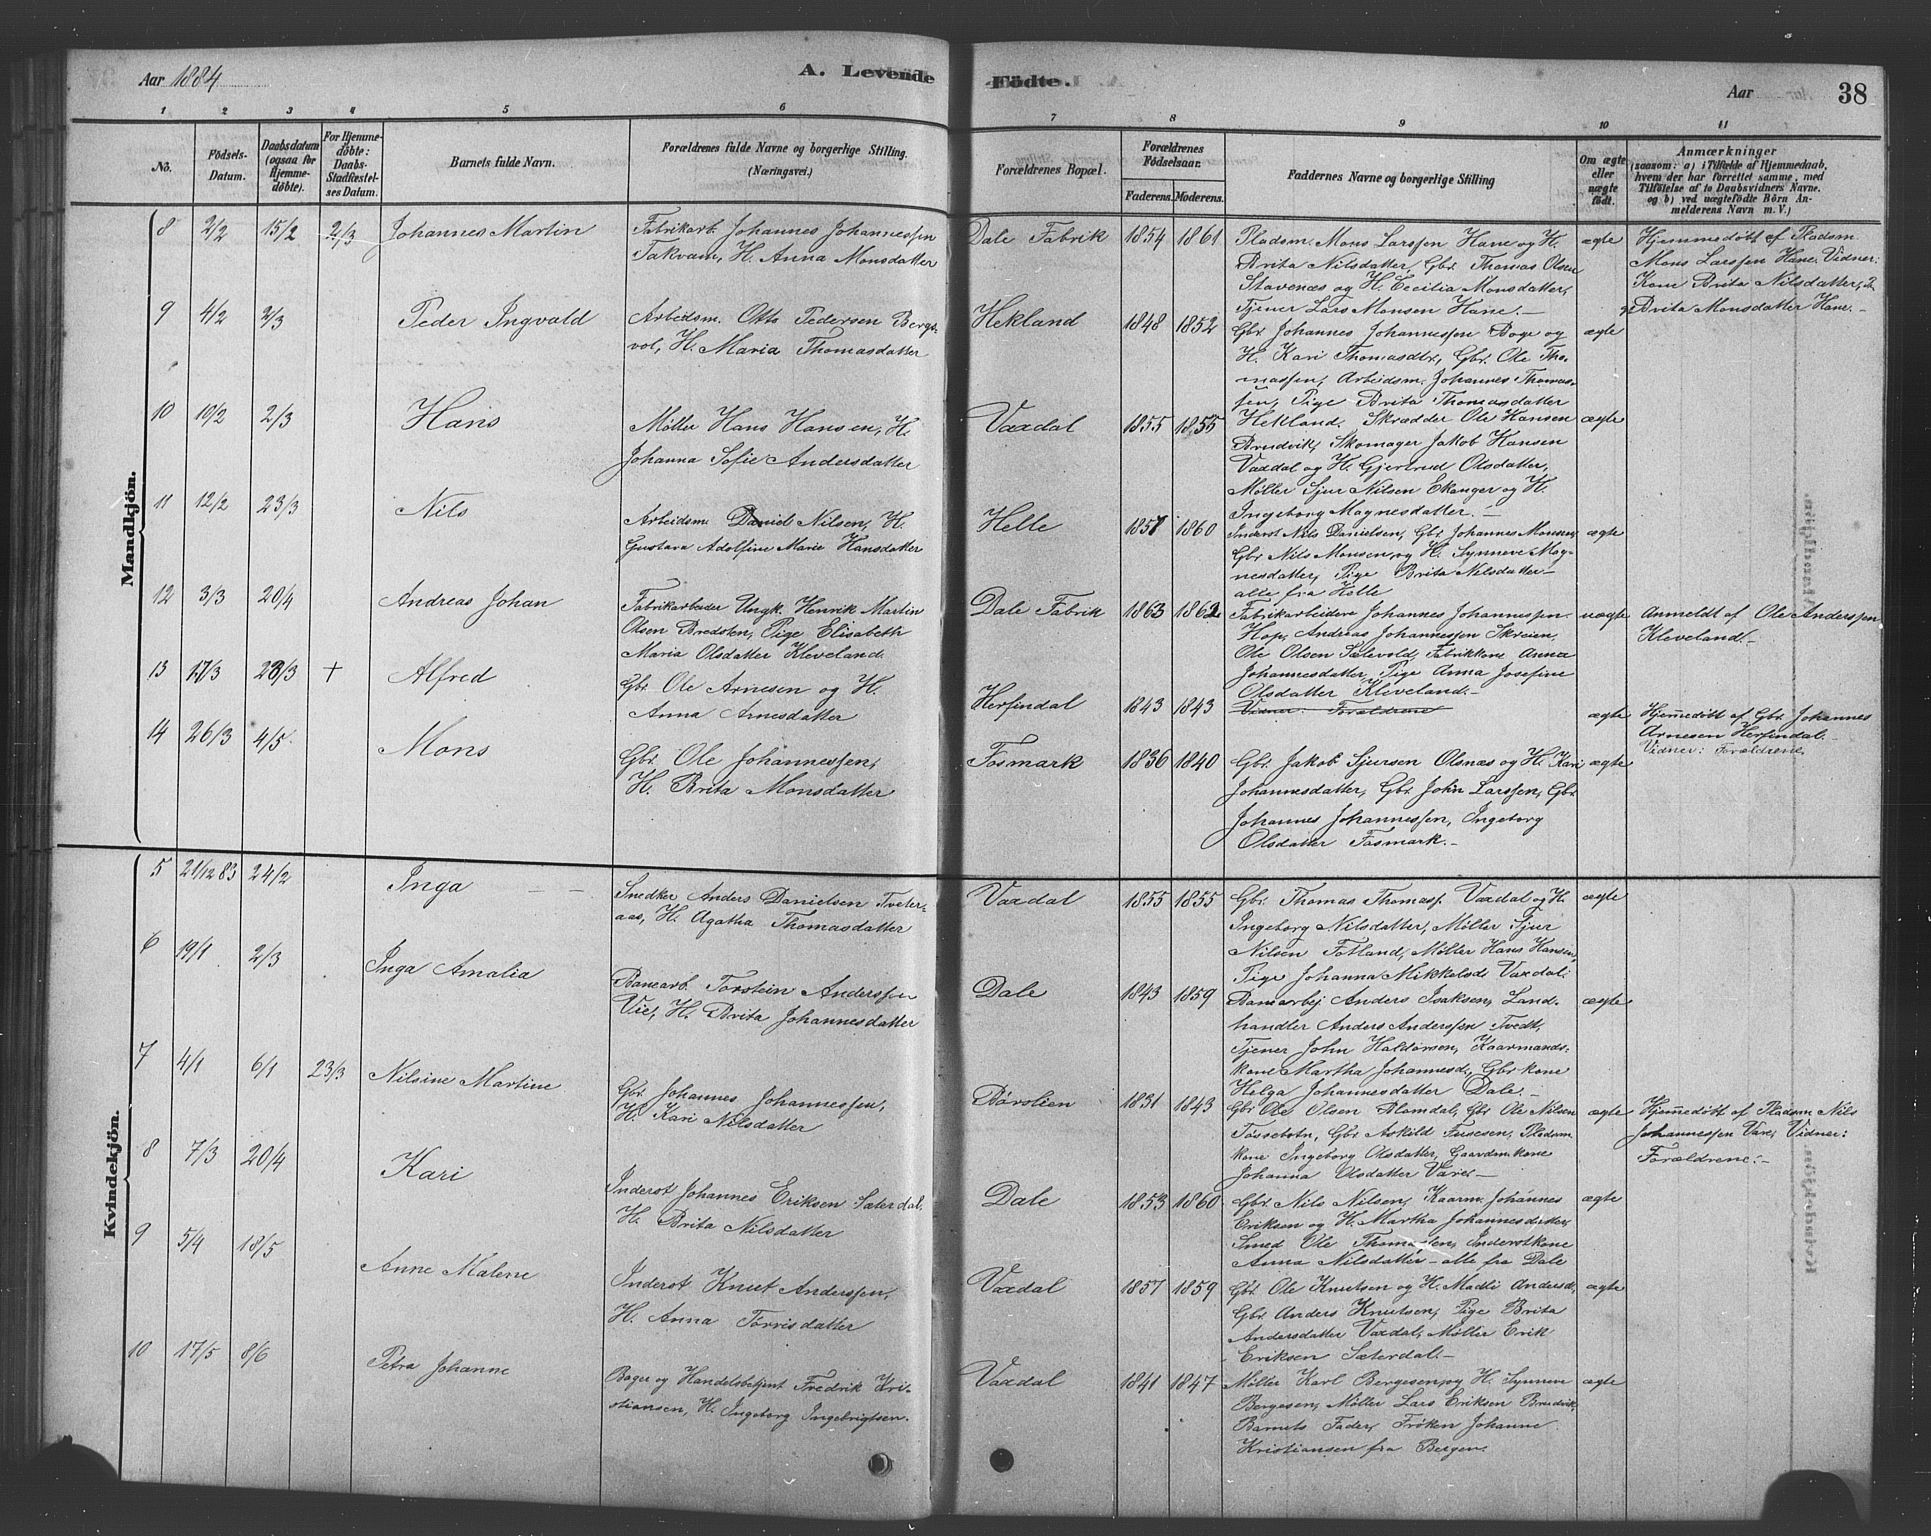 Aar 1884
A. Levende Födte.
Aar
38
1 2 3 4 5 6 7 8 9 10 11
No.
Födsels-Datum.
Daabsdatum (ogsaa for Hjemmedöbte).
For Hjemmedöbte: Daabs-Stadfæstelses Datum.
Barnets fulde Navn.
Forældrenes fulde Navne og borgerlige Stilling.
(Næringsvei.)
Forældrenes Bopæl.
Forældrenes Födselsaar.
Faderens. Moderens.
Faddernes Navne og borgerlige Stilling
Om ægte eller uægte födt.
Anmærkninger
(saasom: a) i Tilfælde af Hjemmedaab, hvem der har forrettet samme, med Tilföielse af to Daabsvidners Navne. og b) ved uægtefödte Börn Anmelderens Navn m. V.)
Mandkjön.
8 2/2 15/2 2/3 Johannes Martin
Fabrikarb. Johannes Johannessen
Takvam, H. Anna Monsdatter
Dale Fabrik 1854 1861
Pladsm. Mons Larssen Hane og H.
Brita Nilsdatter, Gbr. Thomas Olsen
Stavenæs og H. Cecilia Monsdatter,
Tjener Lars Monsen Hane.-
ægte
Hjemmedöbt af Pladsm.
Mons Larssen Hane. Vidner:
Kone Brita Nilsdatter,
Brita Monsdatter Hane.-
9 4/2 2/3 Peder Ingvald
Arbeidsm. Otto Pedersen Bergs-
vol, H. Maria Thomasdatter
Hekland 1848 1852
Gbr. Johannes Johannessen Boge og
H. Kari Thomasdtr, Gbr. Ole Tho-
massen, Arbeidsm. Johannes Thomas-
sen, Pige Brita Thomasdatter
Hekland.
ægte
10 10/2 2/3 Hans
Møller Hans Hansen, H.
Johanna Sofie Andersdatter
Vaxdal 1855 1855
Skrædder Ole Hansen
Brudvik, Skomager Jakob Hansen
Vaxdal og H. Gjertrud Olsdatter,
Møller Sjur Nilsen Ekanger og H.
Ingeborg Magnesdatter.-
ægte
11 12/2 23/3 Nils
Arbeidsm. Daniel Nilsen, H.
Gustava Adolfine Marie Hansdatter
Helle 1857 1860
Inderst Nils Danielsen, Gbr. Johannes Monsen,
Gbr. Nils Monsen og H. Synneve Mag-
nesdatter, Pige Brita Nilsdatter-
alle fra Helle
ægte
12 3/3 20/4 Andreas Johan
Fabrikarbeider Ungk. Henrik Martin
Olsen Bredsten, Pige Elisabeth
Maria Olsdatter Kleveland.
Dale Fabrik 1863 1862
Fabrikarbeidere Johannes Johannessen
Hop, Andreas Johannessen Skreien,
Ole Olsen Sælevold, Fabrikkone Anna
Johannesdatter, Pige Anna Josefine
Olsdatter Kleveland.-
uægte
Anmeldt af Ole Anderssen
Kleveland.-
13 17/3 23/3 + Alfred
Gbr. Ole Arnesen og H.
Anna Arnesdatter
Herfindal 1843 1843
Vidner: Forældrene
ægte
Hjemmedöbt af Gbr. Johannes
Arnesen Herfindal.-
Vidner: Forældrene.
14 26/3 4/5 Mons
Gbr. Ole Johannessen,
H. Brita Monsdatter
Fosmark 1836 1840
Gbr. Jakob Sjursen Olsnæs og H. Kari
Johannesdatter, Gbr. John Larssen, Gbr.
Johannes Johannessen, Ingeborg
Olsdatter Fosmark.-
ægte
Kvindekjön.
5 21/12 83 24/2 Inga
Snedker Anders Danielsen Tveter-
aas, H. Agatha Thomasdatter
Vaxdal 1855 1855
Gbr. Thomas Thomass. Vaxdal og H.
Ingeborg Nilsdatter, Møller Sjur
Nilsen Fotland, Møller Hans Hansen,
Pige Johanna Mikkelsd. Vaxdal.
ægte
6 19/1 2/3 Inga Amalia
Banearb. Torstein Anderssen
Vie, H. Brita Johannesdatter
Dale 1843 1859
Banearbej. Anders Isaksen, Land-
handler Anders Anderssen Tvedt,
Tjener John Haldorsen, Kaarmands-
kone Martha Johannesd., Gbr. kone
Helga Johannesdatter Dale.-
ægte
7 4/1 6/1 23/3 Nilsine Martine
Gbr. Johannes Johannessen,
H. Kari Nilsdatter
Børslien 1831 1843
Gbr. Ole Olsen Blomdal, Gbr. Ole Nilsen
Fossebotn, Gbr. Askild Fusesen, Pladsm.
kone Ingeborg Olsdatter, Gaardm. kone
Johanna Olsdatter Vare.-
ægte
Hjemmedöbt af Pladsm. Nils
Johannessen Vare, Vidner:
Forældrene.-
8 7/3 20/4 Kari
Inderst Johannes Eriksen Sæterdal,
H. Brita Nilsdatter
Dale 1853 1860
Gbr. Nils Nilsen, Kaarm. Johannes
Eriksen og H. Martha Johannesdatter,
Smed Ole Thomassen, Inderstkone
Anna Nilsdatter - alle fra Dale
ægte
9 5/4 18/5 Anne Malene
Inderst Knut Anderssen,
H. Anna Torrisdatter
Vaxdal 1857 1859
Gbr. Ole Knutsen og H. Madli Andersd.,
Gbr. Anders Knutsen, Pige Brita
Andersdatter Vaxdal, Møller Erik
Eriksen Sæterdal.-
ægte
10 17/5 8/6 Petra Johanne
Bager og Handelsbetjent Fredrik Kri-
stiansen, H. Ingeborg Ingebrigtsen.
Vaxdal 1841 1847
Møller Karl Bergesen og H. Synnen
Bergesen, Møller Lars Eriksen Brudvik,
Barnets Fader, Frøken Johanne
Kristiansen fra Bergen.
ægte